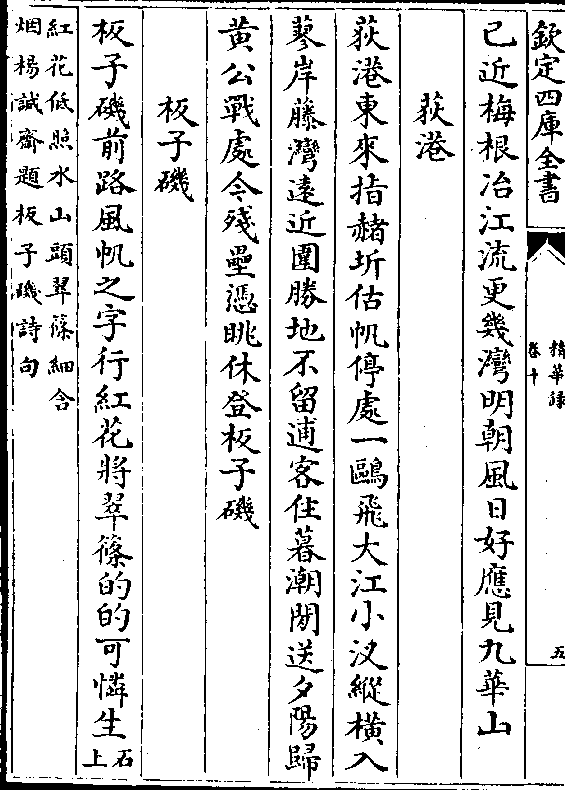 欽定四庫全書
精華錄
卷十
五
已近梅根冶江流更幾灣明朝風日好應見九華山
荻港
荻港東來指赭圻估帆停處一鷗飛大江小汊縱橫入
蓼岸藤灣遠近圍勝地不留逋客住暮潮閒送夕陽歸
黄公戰處今殘壘憑眺休登板子磯
板子磯
板子磯前路風帆之字行紅花將翠篠的的可憐生石上
紅花低照水山頭翠篠細含
烟楊誠齋題板子磯詩句